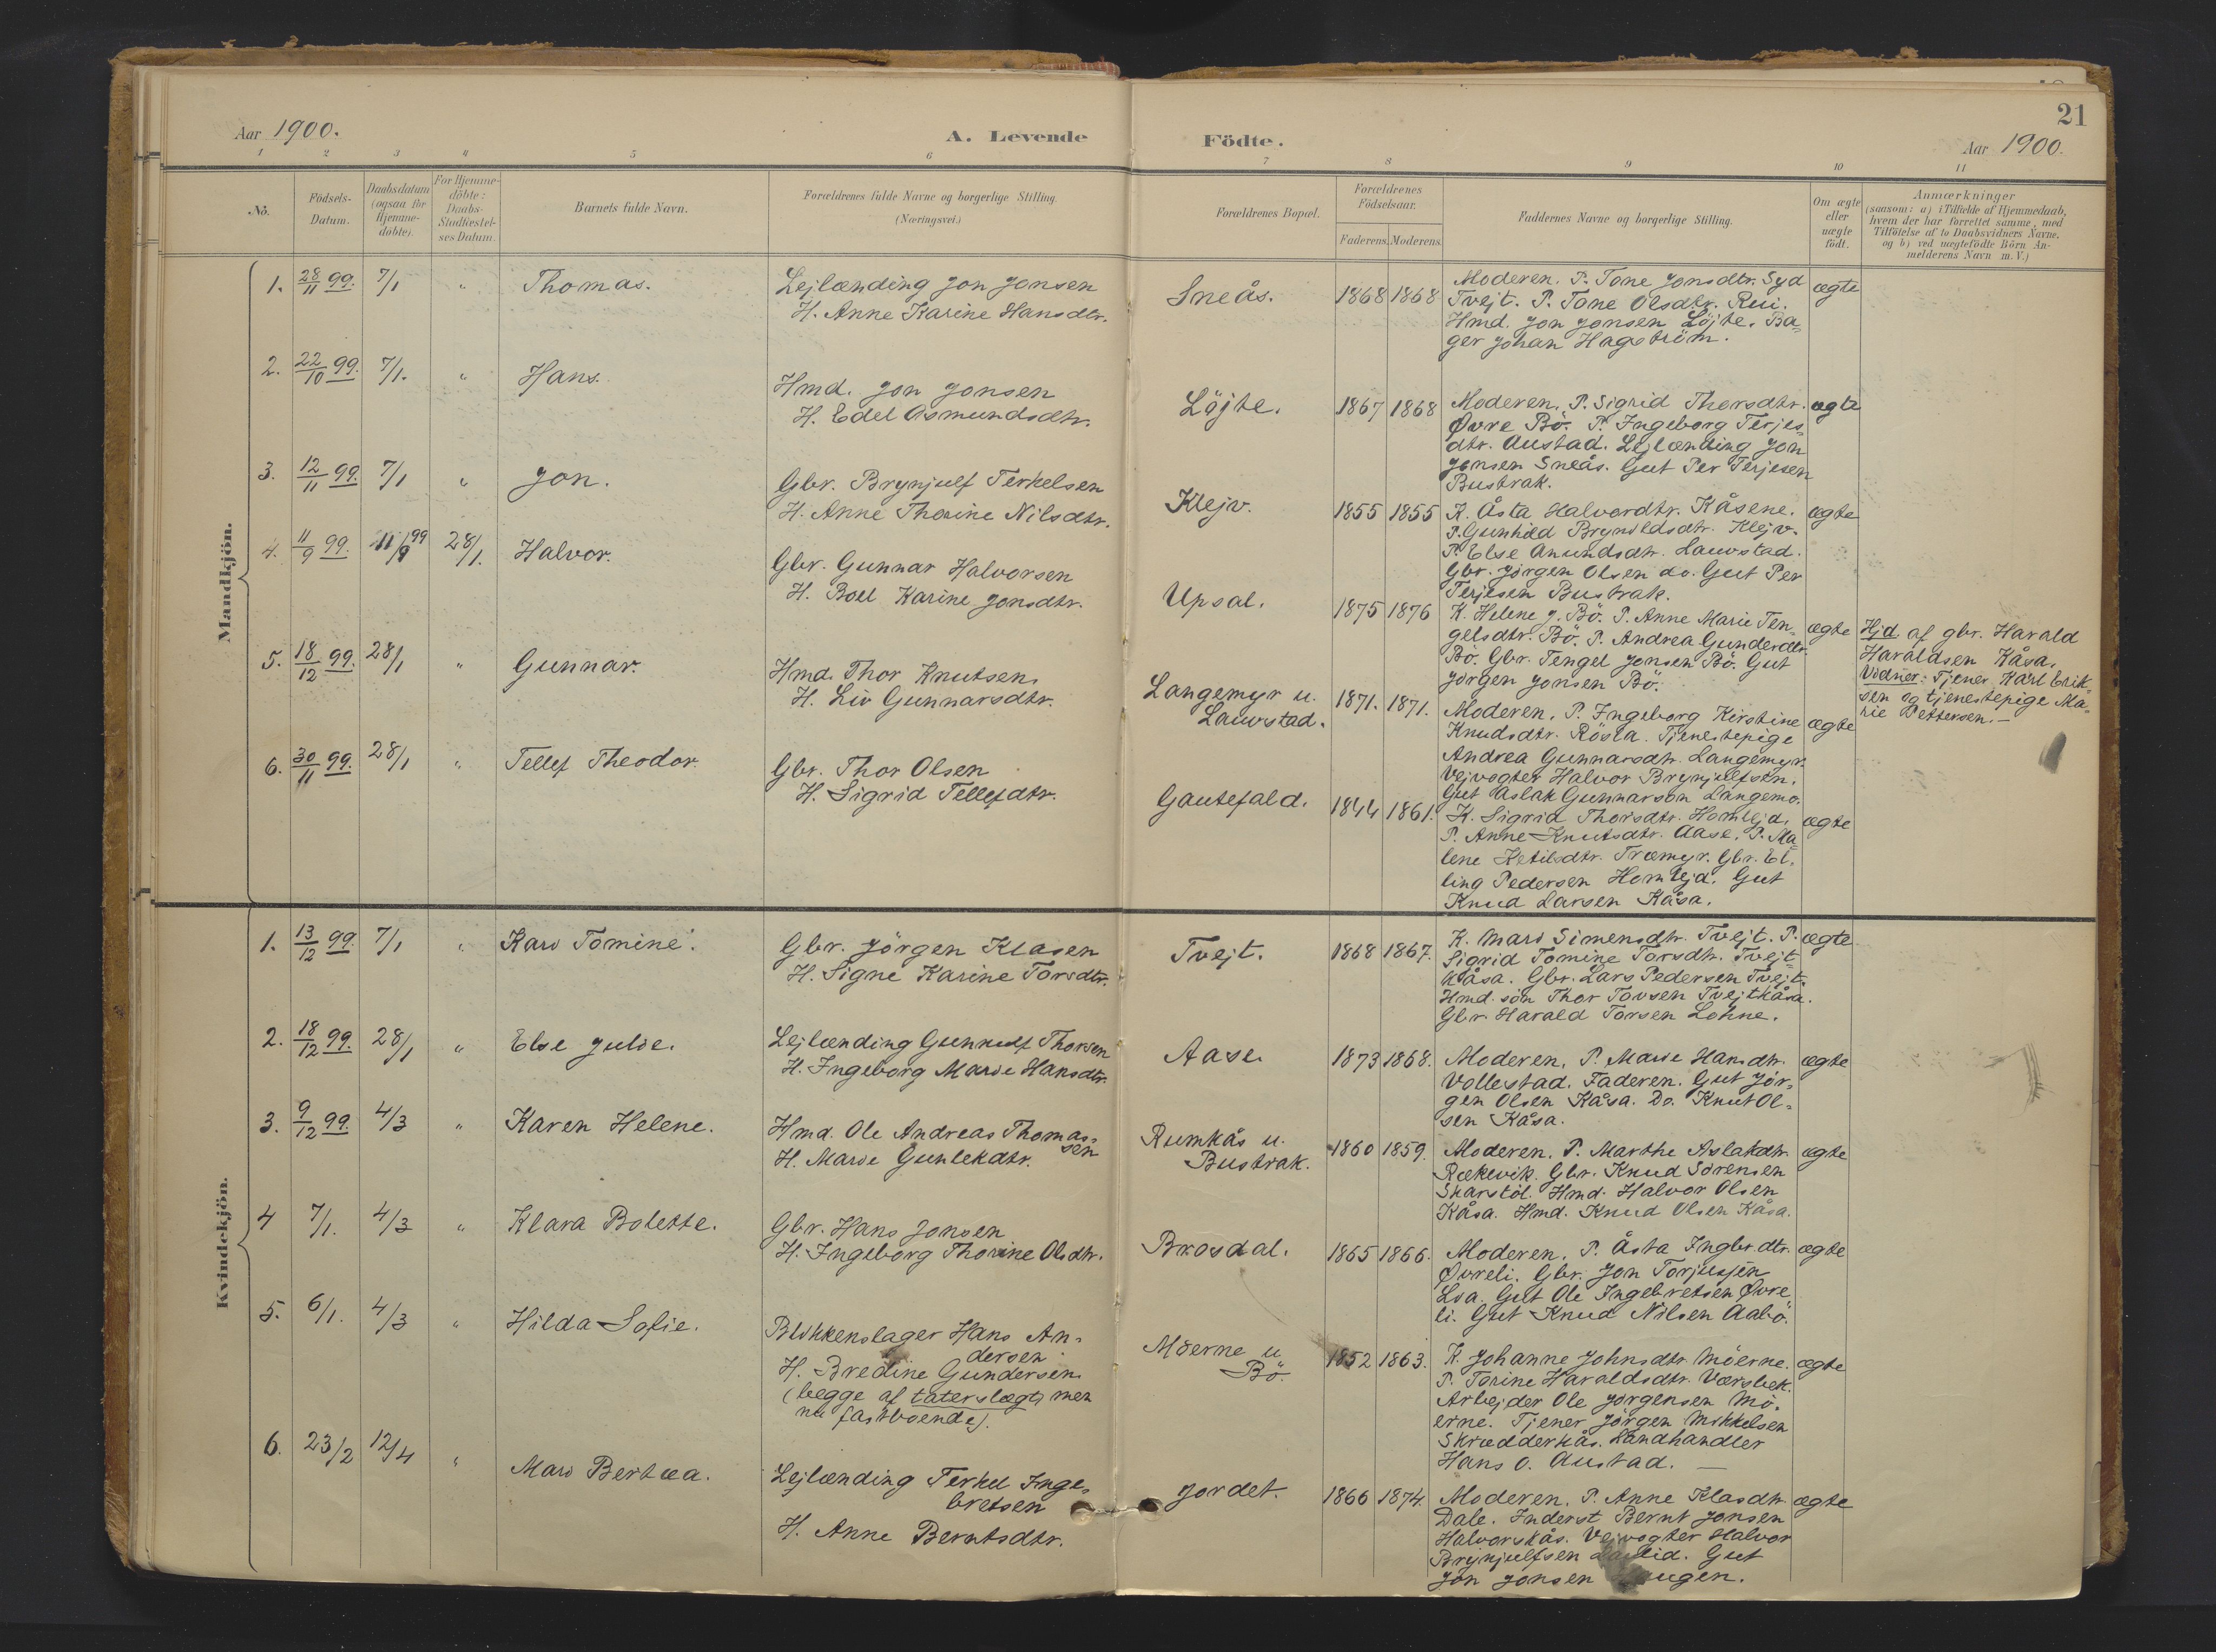 21
Aar 1900.
A. Levende
Födte.
Aar 1900.
1 2 3 4 5 6
7 8 9 10 11
No.
Födsels-
Datum.
Daabsdatum
(ogsaa for
Hjemme-
döbte).
For Hjemme-
döbte:
Daabs-
Stadfæstel-
ses Datum.
Barnets fulde Navn.
Forældrenes fulde Navne og borgerlige Stilling
(Næringsvei.)
Forældrenes Bopæl.
Forældrenes
Födselsaar.
Faderens. Moderens.
Faddernes Navne og borgerlige Stilling.
Om ægte
eller
uægte
födt.
Anmærkninger
(saasom: a) i Tilfælde af Hjemmedaab,
hvem der har forrettet samme, med
Tilföielse af to Daabsvidners Navne,
og b) ved uægtefödte Börn An-
melderens Navn m. V.)
Mandkjön.
1. 28/11 99. 7/1 " Thomas.
Lejlænding Jon Jonsen
H. Anne Karine Hansdtr.
Sneås.
1868 1868
Moderen. P. Tone Jonsdtr. Syd
Tvejt. P. Tone Olsdtr. Rui.
Hmd. Jon Jonsen Löjte. Ba=
ger Johan Hagström.
ægte
2. 22/10 99. 7/1. " Hans.
Hmd. Jon Jonsen
H. Edel Asmundsdtr.
Löjte.
1867 1868
Moderen. P. Sigrid Thorsdtr.
Øvre Bö. P. Ingeborg Terjes=
dtr. Austad. Lejlænding Jon
Jonsen Sneås. Gut Per Terjesen
Bustrak.
ægte
3. 12/11 99. 7/1 " Jon.
Gbr. Brynjulf Terkelsen
H. Anne Thorine Nilsdtr.
Klejv.
1855 1855
K. Åsta Halvordtr. Kåsene.
P. Gunhild Brynildsdtr. Klejv.
P. Else Anundsdtr. Lauvstad.
Gbr. Jörgen Olsen do. Gut Per
Terjesen Bustrak.
ægte
4. 11/9 99. 11/9 99 28/1. Halvor.
Gbr. Gunnar Halvorsen
H. Boel Karine Jonsdtr.
Upsal.
1875 1876
K. Helene J. Bö. P. Anne Marie Ten=
gelsdtr. Bö. P. Andrea Gundersdtr.
Bö. Gbr. Tengel Jonsen Bö. Gut
Jörgen Jonsen Bö.
ægte
Hjd. af gbr. Harald
Haraldsen Kåsa.
Vidner: Tjener Karl Erik=
sen og tjenestepige Ma=
rie Pettersen.—
5. 18/12 99. 28/1 " Gunnar.
Hmd. Thor Knutsen
H. Liv Gunnarsdtr.
Langemyr u.
Lauvstad.
1871. 1871.
Moderen. P. Ingeborg Kirstine
Knudsdtr. Rösla. Tjenestepige
Andrea Gunnarsdtr. Langemyr.
Vejvogter Halvor Brynjulfsen.
Gut Aslak Gunnarson Langemo.
ægte
6. 30/11 99. 28/1 " Tellef Theodor.
Gbr. Thor Olsen
H. Sigrid Tellefdtr.
Gautefald.
1844 1861.
K. Sigrid Thorsdtr. Homlejd.
P. Anne Knutsdtr. Aase. P. Ma
lene Ketilsdtr. Træmyr. Gbr. El.
ling Pedersen Homlejd. Gut
Knud Larsen Kåsa.
ægte
Kvindekjön.
1. 13/12 99. 7/1 " Kari Tomine.
Gbr. Jörgen Klasen
H. Signe Karine Torsdtr.
Tvejt.
1868 1867.
K. Mari Simensdtr. Tvejt. P.
Sigrid Tomine Torsdtr. Tvejt=
kåsa. Gbr. Lars Pedersen Tvejt.
Hmd. sön Thor Tovsen Tvejtkåsa.
Gbr. Harald Torsen Lohne.
ægte
2. 18/12 99. 28/1 " Else Julie.
Lejlænding Gunnulf Thorsen
H. Ingeborg Marie Hansdtr.
Aase.
1873 1868.
Moderen. P. Marie Hansdtr.
Vollestad. Faderen. Gut Jör=
gen Olsen Kåsa. Do. Knut Ol=
sen Kåsa.
ægte
3. 9/12 99. 4/3 " Karen Helene.
Hmd. Ole Andreas Thomas=
sen
H. Marie Gunlekdtr.
Rumkås u.
Bustrak.
1860 1859.
Moderen. P. Marthe Aslakdtr.
Rækevik. Gbr. Knud Sörensen
Skarstöl. Hmd. Halvor Olsen
Kåsa. Hmd. Knud Olsen Kåsa.
ægte
4 7/1. 4/3 " Klara Bolette.
Gbr. Hans Jonsen
H. Ingeborg Thorine Olsdtr.
Brosdal.
1865 1866.
Moderen. P. Åsta Ingbr.dtr.
Øvreli. Gbr. Jon Torjussen
Lia. Gut Ole Ingebretsen Øvre
li. Gut Knud Nilsen Aabö.
ægte
5. 6/1. 4/3 " Hilda Sofie.
Blikkenslager Hans An=
dersen
H. Bredine Gundersen
(begge af taterslægt, men
nu fastboende).
Möerne u.
Bö.
1852 1863.
K. Johanne Johnsdtr. Möerne.
P. Torine Haraldsdtr. Værsbek.
Arbejder Ole Jörgensen Mö=
erne. Tjener Jörgen Mikkelsen
Skrædderkås. Landhandler
Hans O. Austad. —
ægte
6. 23/2 12/4 " Mari Bertea.
Lejlænding Terkel Inge=
bretsen
H. Anne Berntsdtr.
Jordet.
1866 1874.
Moderen. P. Anne Klasdtr.
Dale. Inderst Bernt Jonsen
Halvorskås. Vejvogter Halvor
Brynjulfsen Gut
Jon Jonsen
ægte